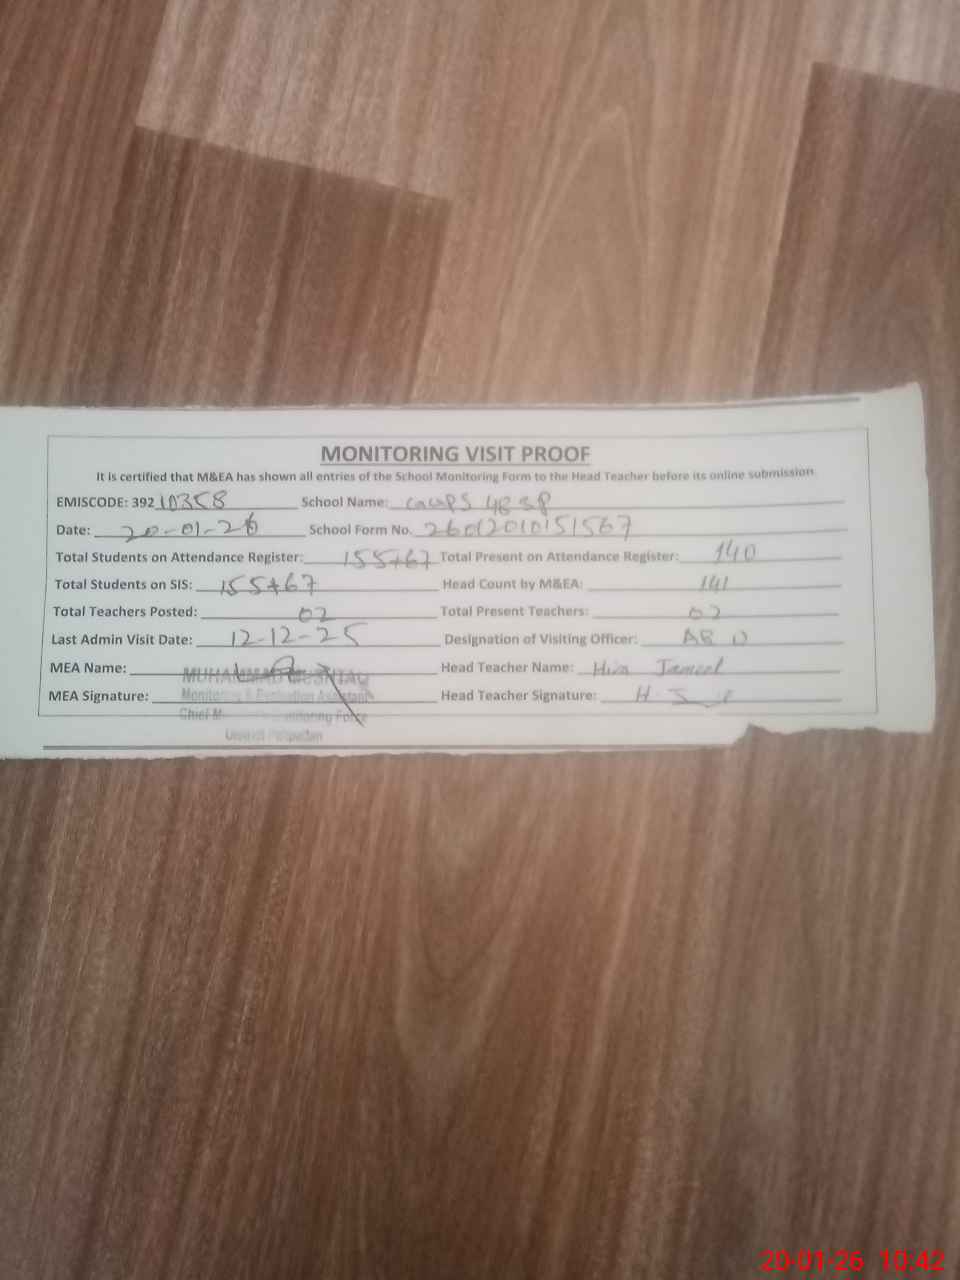 MONITORING VISIT PROOF
It is certified that M&EA has shown all entries of the School Monitoring Form to the Head Teacher before its online submission
EMISCODE: 392 10358 School Name: GGPS 48 SP
Date: 20-01-26 School Form No. 26012010151567
Total Students on Attendance Register: 155+67 Total Present on Attendance Register: 140
Total Students on SIS: 155+67 Head Count by M&EA: 141
Total Teachers Posted: 02 Total Present Teachers: 02
Last Admin Visit Date: 12-12-25 Designation of Visiting Officer:
MEA Name: MUHAMMAD MUSHTAQ Head Teacher Name: Hira Jameel
MEA Signature: Monitoring & Evaluation Assistant Head Teacher Signature:
Chief Monitoring Force
District Pakpattan
20-01-26 10:42